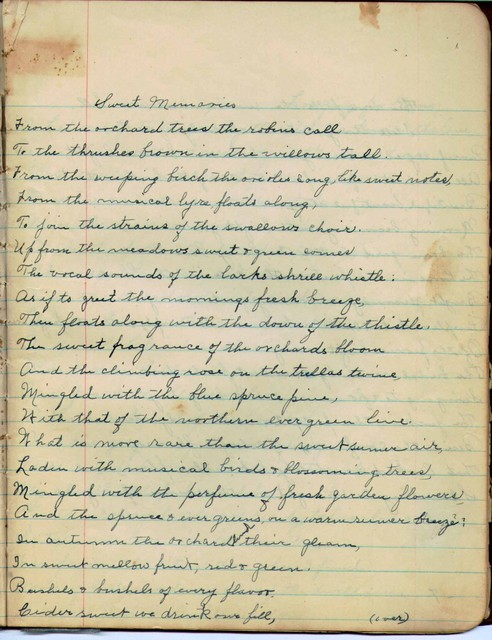 Sweet Memories
From the orchard trees the robins call
To the thrushes brown in the willows tall.
From the weeping birch the orioles song like sweet notes
From the musical lyre floats along,
To join the strains of the swallows choir.
Up from the meadows sweet & green comes
The vocal sounds of the larks shrill whistle:
As if to greet the mornings fresh breeze,
Then floats along with the down of the thistle.
The sweet fragrance of the orchards bloom
And the climbing rose on the trellas twine,
Mingled with the blue spruce pine,
With that of the northern evergreen line.
What is more rare than the sweet sumer air,
Laden with musical birds & blossoming trees,
Mingled with the perfume of fresh garden flowers,
And the spruce & evergreens, on a warm sumer breeze?
In autumn the orchards their gleam,
In sweet mellow fruit, red & green.
Bushels & bushels of every flavor,
Cider sweet we drink our fill,
(over)